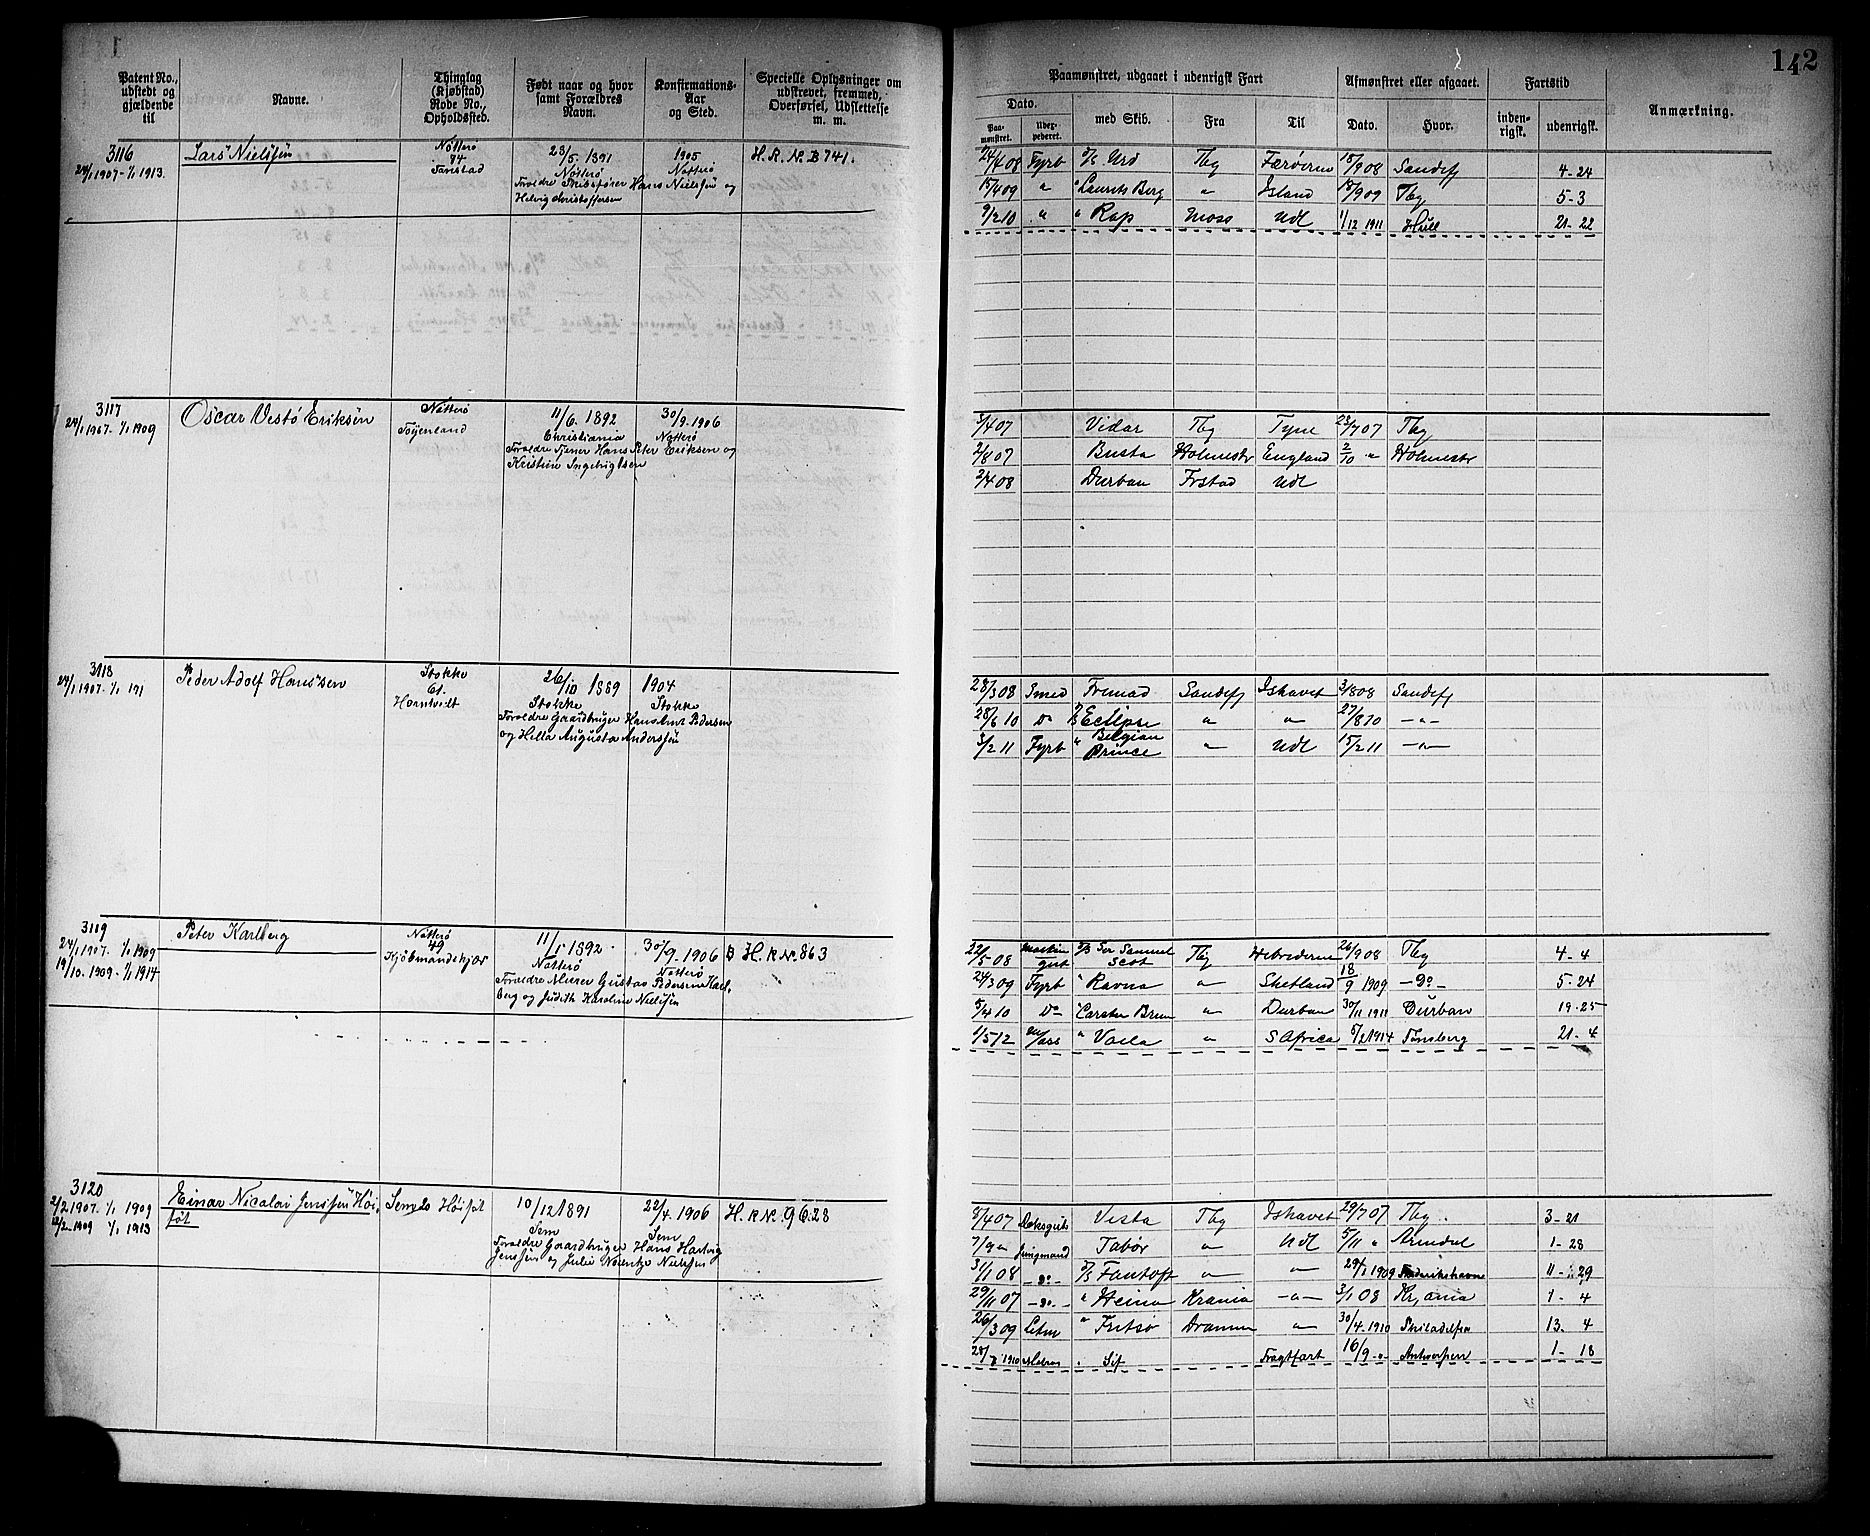 142
Patent No., udstedt og gjældende til
Navne.
Thinglag (Kjøbstad) Rode No., Opholdssted.
Født naar og hvor samt Forældres Navn.
Konfirmations-Aar og Sted.
Specielle Oplysninger om udskrevet, fremmed, Overførsel, Udslettelse m. m.
Paamønstret, udgaaet i udenrigsk Fart
Afmønstret eller afgaaet.
Fartstid
Anmærkning.
Dato.
Paa-mønstret.
med Skib.
Fra
Til
Dato.
Hvor.
inden-rigsk.
udenrigsk.
3116
24/1 1907-1/1 1913.
Lars Nielsen
Nøtterø
23/5. 1891
Nøtterø
Forældre Skibsfører Hans Nielsen og
Helvig Christoffersen
1905
Nøtterø
H. R. N. B 741.
24/4 08 Fyrb D/S Urd Tbg Færøerne 18/9 08 Sandefj 4-24
15/4 09 " " Laurits Berg " Island 18/9 09 Tbg 5-3
9/2 10 " " Rap Moss Udl 1/12 1911 Hull 21-22
3117
24/1 1907-1/1 1909
Oscar Vestø Eriksen
Nøtterø
Føyenland
11/6. 1892
Christiania
Forældre Tjener Hans Peter Eriksen og
Kristine Ingebrigtsen
30/9-1906
Nøtterø
3/4 07 Vidar Tbg Tyne 23/7 07 Tbg
2/8 07 Busta Holmestr England 2/10 " Holmestr
2/4 08 Durban Frstad Udl
3118
24/1 1907-1/1 191
Peder Adolf Hanssen
Stokke
61.
26/10 1889
Stokke
Forældre Gaardbruger Hans Arnt Pedersen
og Hella Augusta Anderssen
1904
Stokke
28/3 08 Smed Fremad Sandefj Ishavet 3/8 08 Sandefj
28/6 10 Do D/S Eclipse " " 27/8 10 -"-
3/2 11 Fyrb " Belgian Prince " Udl 15/2 11 -"-
3119
24/1 1907. 1/1 1909
19/10. 1909-1/1 1914
Peter Karlberg
Nøtterø
49
11/1 1892.
Nøtterø
Forældre Murer Gustav Pedersen Karl-
berg og Judith Karoline Nielsen
30/9. 1906
Nøtterø
B H. R N. 863
22/5 08 Maskin gut D/S Ser Samuel Scot Tbg Hebriderne 26/9 08 Tbg 4-4
24/3 09 Fyrb " Ravna " Shetland 18/9 1909 -Do- 5-24
5/4 10 Do " Carsten Bruun " Durban 30/11 1911 Durban 19-25
1/5 12 " Vaila " S Africa 5/2 1914 Tønsberg 21-4
3120
2/2 1907. 1/1 1909
1/1 1913
Einar Nicolai Jenssen Høi-
jøt
10/12 1891
Sem
Forældre Gaardbruger Hans Hartvig
Jenssen og Julie Nielsen
22/4. 1906
Sem
H. R N. 9 628
8/4 07 Dæksgut Vesta Tbg Ishavet 29/7 07 Tbg. 3-21
7/9 " Jungmand Tabor " Udl 5/11 " Arendal 1-28
31/1 08 -Do- D/S Fantoft " " 29/1 1909 Frederikshavn 11-29
29/11 07 -Do- " Heina Krania -"- 3/1 08 Kr,ania 1-4
26/3 09 Letm " Fritzø Drammen " 30/4. 1910 Philadelfia 13-4
28/7 1910 Matros " Sif Fragtfart 16/9-" Antwerpen 1-18